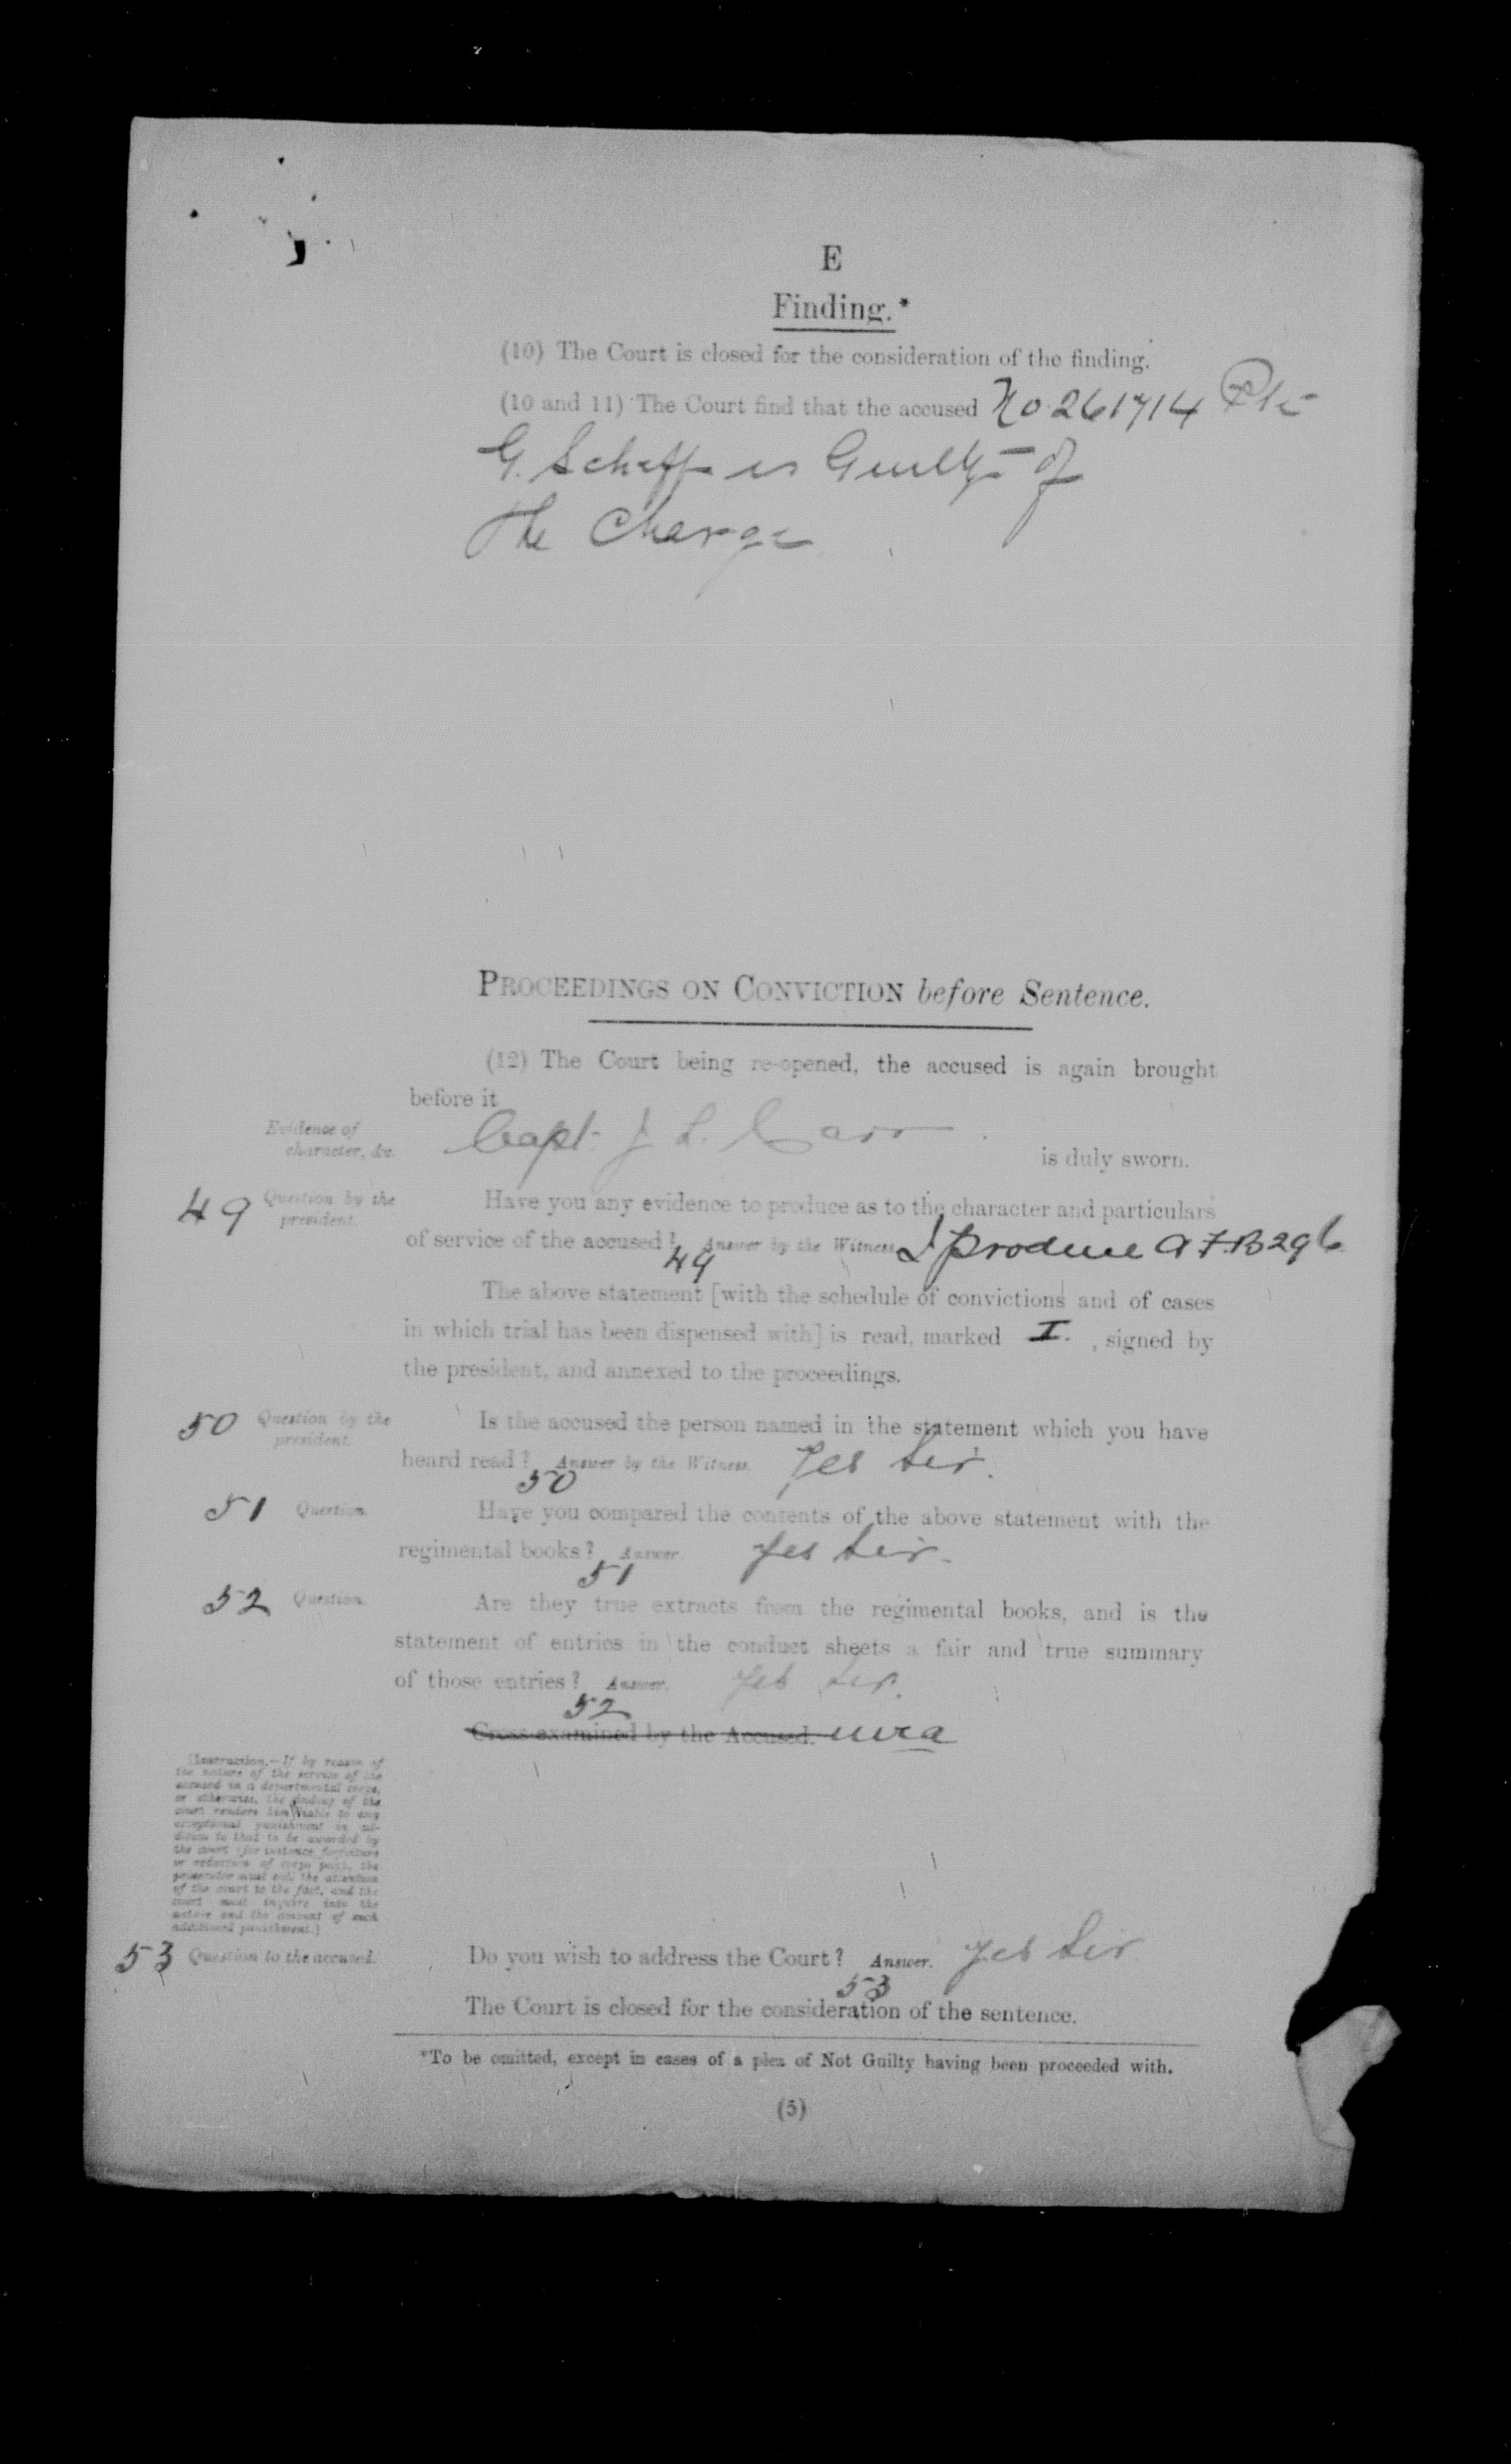 E
Finding.*
(10) The Court is closed for the consideration of the finding.
(10 and 11) The Court find that the accused No 261714 Pte
G. Scheff is Guilty of
the Charge
PROCEEDINGS ON CONVICTION before Sentence.
(12) The Court being re-opened, the accused is again brought
before it
Evidence of
character, &c.
Capt. J L. Carr is duly sworn.
49 Question by the
president.
Have you any evidence to produce as to the character and particulars
of service of the accused? Answer by the Witness. I produce A F.B 296
49
The above statement [with the schedule of convictions and of cases
in which trial has been dispensed with] is read, marked I. , signed by
the president, and annexed to the proceedings.
50 Question by the
president.
Is the accused the person named in the statement which you have
heard read? Answer by the Witness. Yes Sir.
50
51 Question.
Have you compared the contents of the above statement with the
regimental books? Answer. Yes Sir.
51
52 Question.
Are they true extracts from the regimental books, and is the
statement of entries in the conduct sheets a fair and true summary
of those entries? Answer. Yes Sir.
52
Cross-examined by the Accused.
[Instruction.—If by reason of
the nature of the service of the
accused in a departmental corps,
or otherwise, the finding of the
court renders him liable to any
exceptional punishment in ad-
dition to that to be awarded by
the court (for instance, forfeiture
or reduction of corps pay), the
prosecutor must call the attention
of the court to the fact, and the
court must inquire into the
nature and the amount of such
additional punishment.]
53 Question to the accused.
Do you wish to address the Court? Answer. Yes Sir
53
The Court is closed for the consideration of the sentence.
*To be omitted, except in cases of a plea of Not Guilty having been proceeded with.
(5)